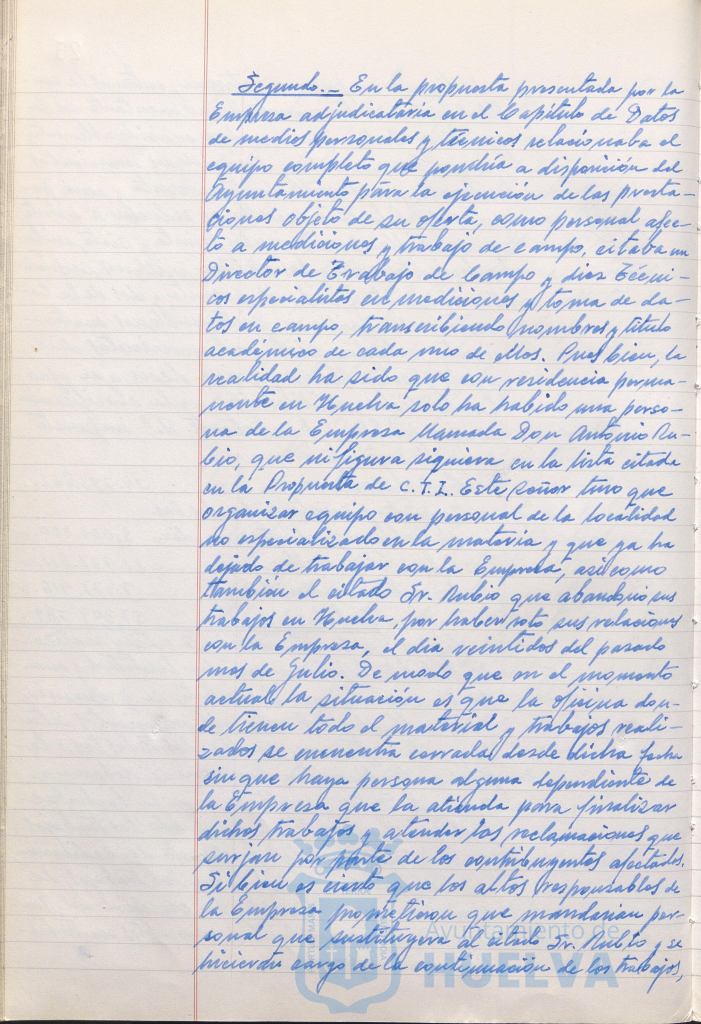 Segundo.- En la propuesta presentada por la
Empresa adjudicataria en el Capítulo de Datos
de medios personales y técnicos relacionaba el
equipo completo que pondría a disposición del
Ayuntamiento para la ejecución de las presta-
ciones objeto de su oferta, como personal afec-
to a mediciones y trabajo de campo, citaba un
Director de Trabajo de Campo y diez Técni-
cos especialistas en mediciones y toma de da-
tos en campo, transcribiendo nombres y título
académico de cada uno de ellos. Pues bien, la
realidad ha sido que con residencia perma-
nente en Huelva solo ha habido una perso-
na de la Empresa llamada Don Antonio Ru-
bio, que ni figura siquiera en la lista citada
en la Propuesta de C.T.I. Este Señor tuvo que
organizar equipo con personal de la localidad
no especializado en la materia y que ya ha
dejado de trabajar con la Empresa, así como
también el citado Sr. Rubio que abandonó sus
trabajos en Huelva, por haber roto sus relaciones
con la Empresa, el día veintidos del pasado
mes de Julio. De modo que en el momento
actual la situación es que la oficina don-
de tienen todo el material y trabajos reali-
zados se encuentra cerrada desde dicha fecha
sin que haya persona alguna dependiente de
la Empresa que la atienda para finalizar
dichos trabajos y atender las reclamaciones que
surjan por parte de los contribuyentes afectados.
Si bien es cierto que los altos responsables de
la Empresa prometieron que mandarían per-
sonal que sustituyera al citado Sr. Rubio y se
hicieran cargo de la continuación de los trabajos,
Ayuntamiento de
HUELVA